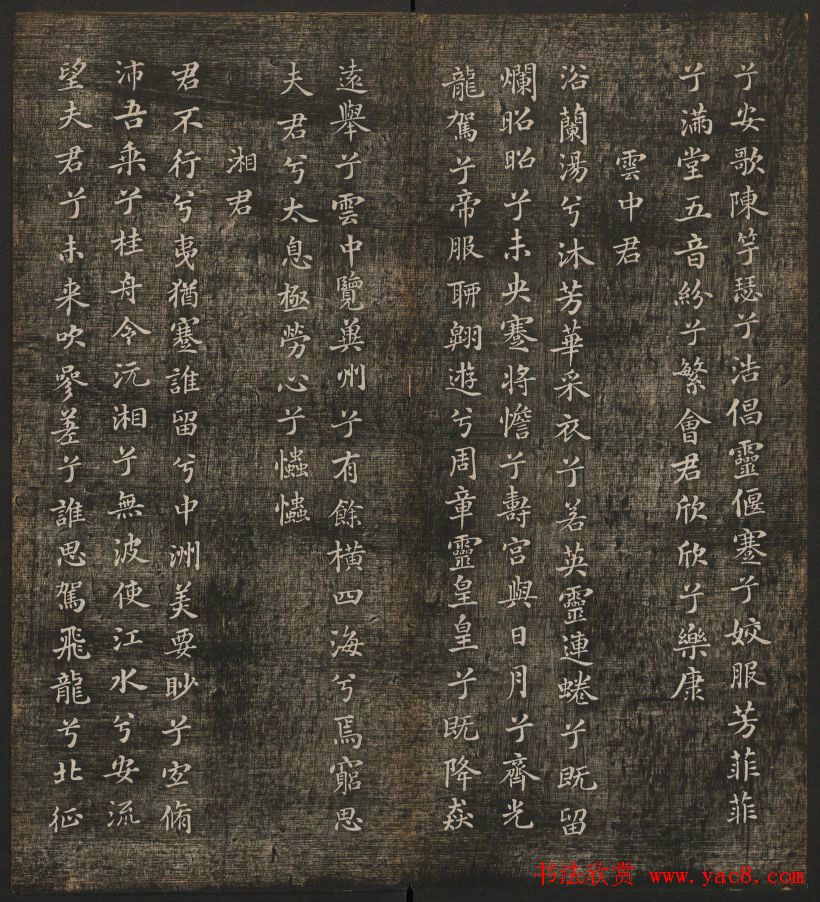 兮安歌陳竽瑟兮浩倡靈偃蹇兮姣服芳菲菲
兮滿堂五音紛兮繁會君欣欣兮樂康
雲中君
浴蘭湯兮沐芳華采衣兮若英靈連蜷兮既留
爛昭昭兮未央蹇將憺兮壽宮與日月兮齊光
龍駕兮帝服聊翱遊兮周章靈皇皇兮既降猋
遠舉兮雲中覽冀州兮有餘橫四海兮焉窮思
夫君兮太息極勞心兮忡忡
湘君
君不行兮夷猶蹇誰留兮中洲美要眇兮宜脩
沛吾乘兮桂舟令沅湘兮無波使江水兮安流
望夫君兮未来吹參差兮誰思駕飛龍兮北征
书法欣赏 www.yac8.com